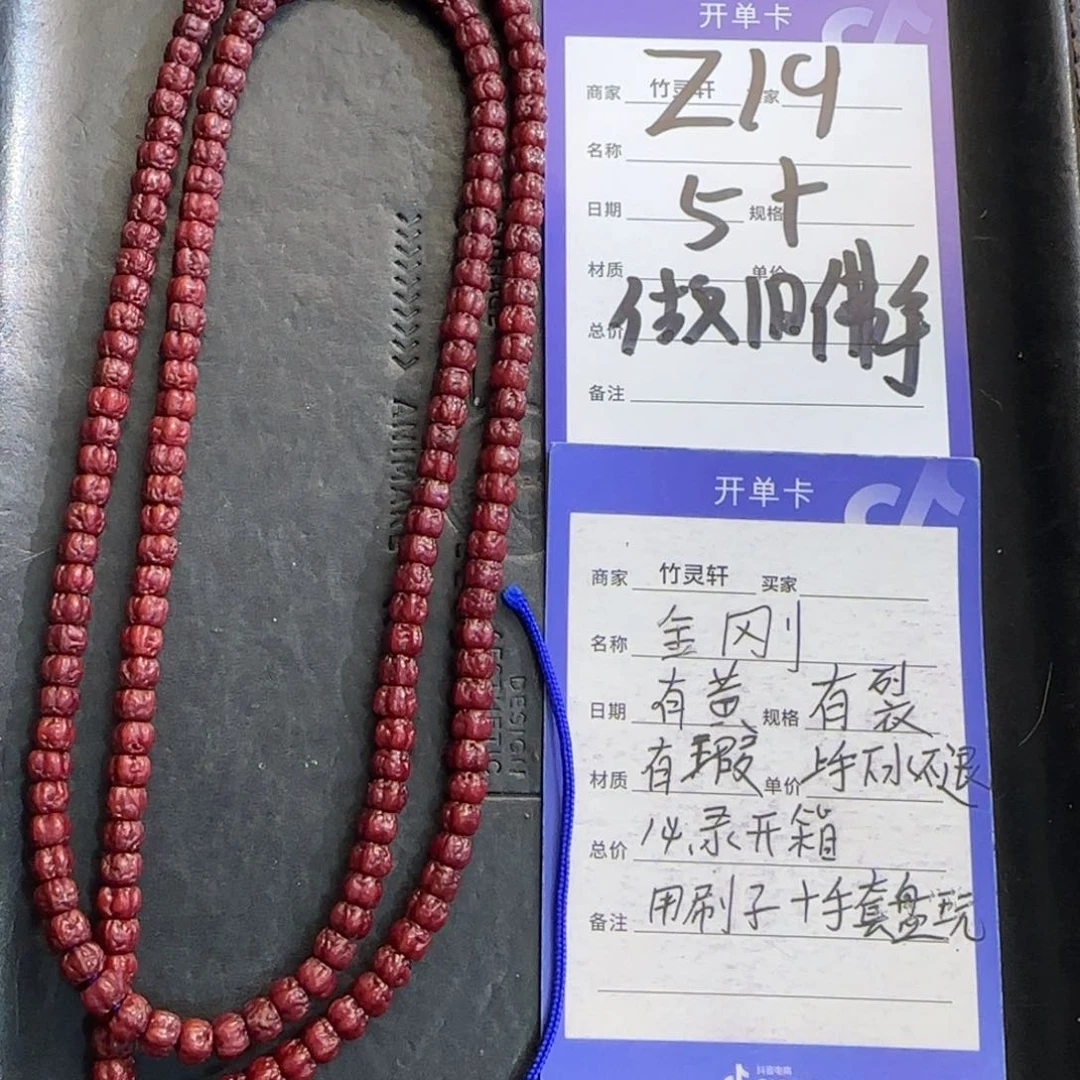 开单卡
商家 竹灵轩
Z19
名称
日期 5+ 规格
材质 单价
总价 做旧佛手
备注
开单卡
商家 竹灵轩 买家
名称 金刚
日期 有黄 规格 有裂
材质 有瑕 单价 上手下水不退
总价 必录开箱
备注 用刷子+手套盘玩
抖音电商
ANIMATE
DESIGN
AESTHETIC